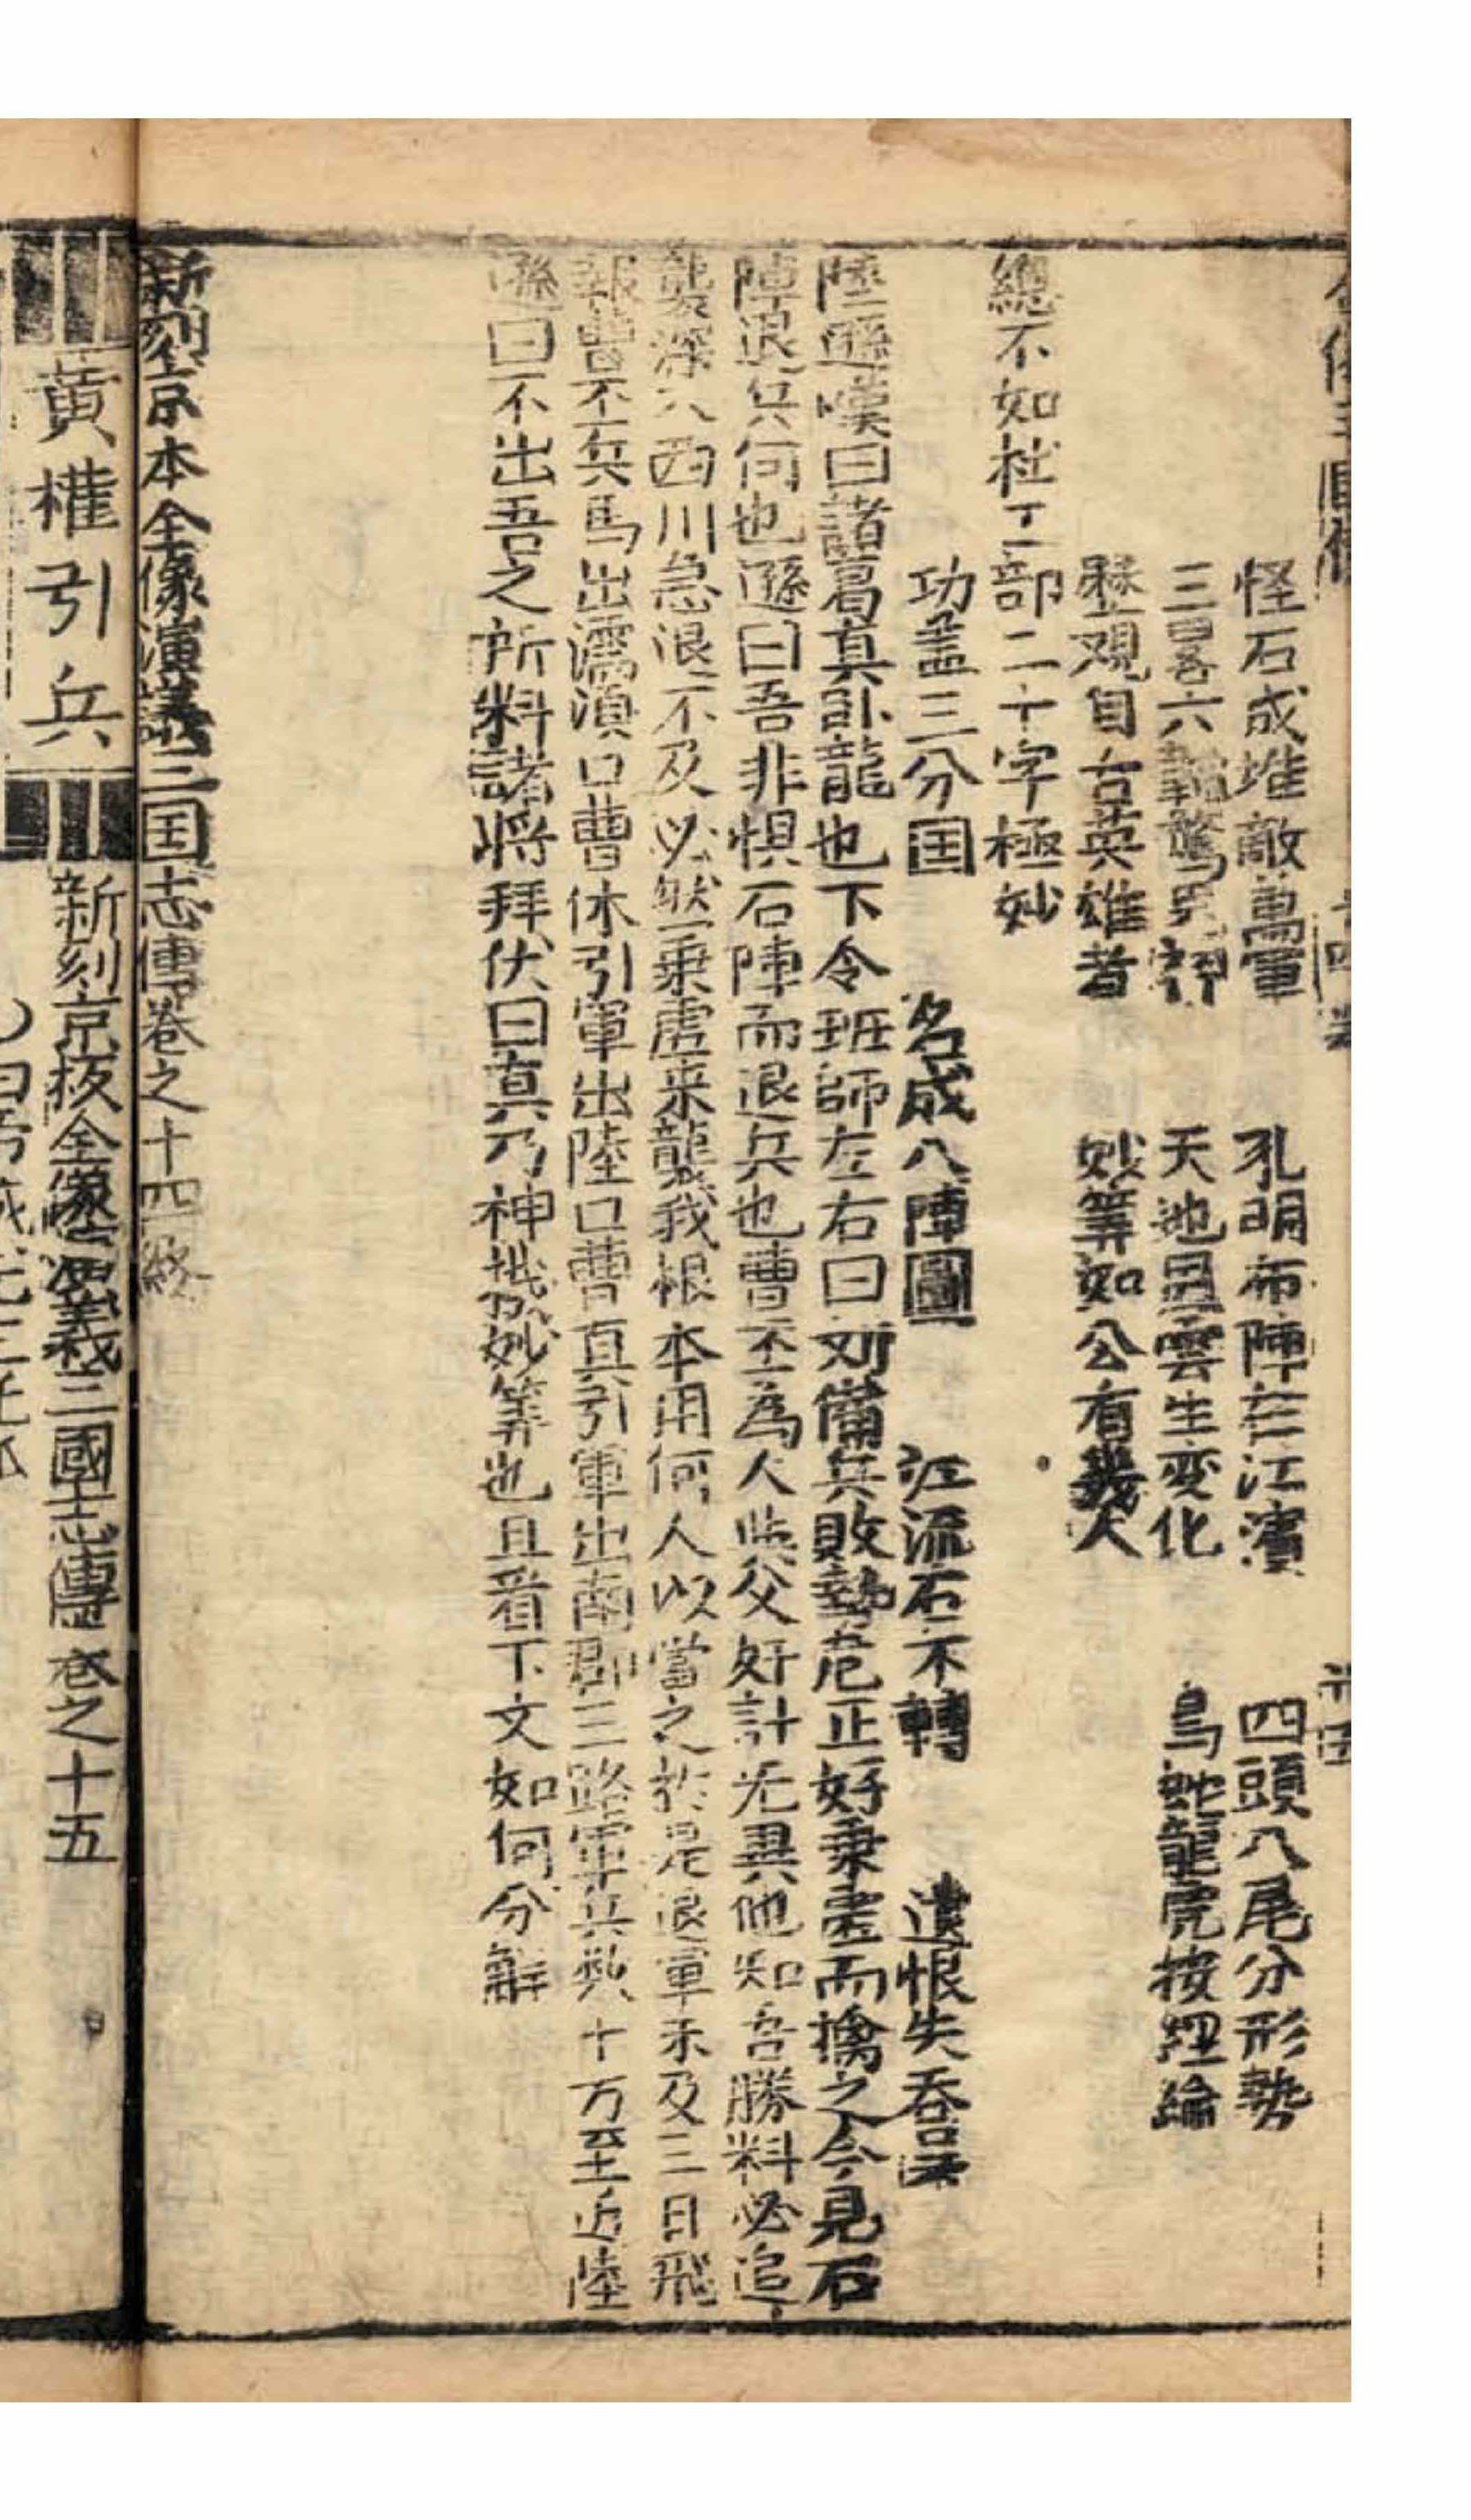 怪石成堆敵萬軍　孔明布陣在江濱　四頭八尾分形勢
三四吞六　驚　天地風雲生变化　鳥蛇龍虎按經綸
歷觀自古英雄者　妙筭如公有幾人
總不如杜工部二十字極妙
功盖三分国　名成八陣圖　江流石不轉　遺恨失吞吳
陸遜嘆曰諸葛真卧龍也下令班師左右曰刘備兵敗勢危正好乗虚而擒之今見石
陣退兵何也遜曰吾非惧石陣而退兵也曹丕為人与父奸計无異他知吾勝料必追
襲深入西川急退不及必然乗虚来襲我根本用何人以當之於是退軍未及三日飛
報曹丕兵馬出濡湏口曹休引軍出陸口曹真引軍出南郡三路軍兵数十万至近陸
遜曰不出吾之所料諸将拜伏曰真乃神机妙筭也且看下文如何分解
新刻京本全像演義三国志傳卷之十四終
新刻京板全像演義三國志傳卷之十五
黄權引兵